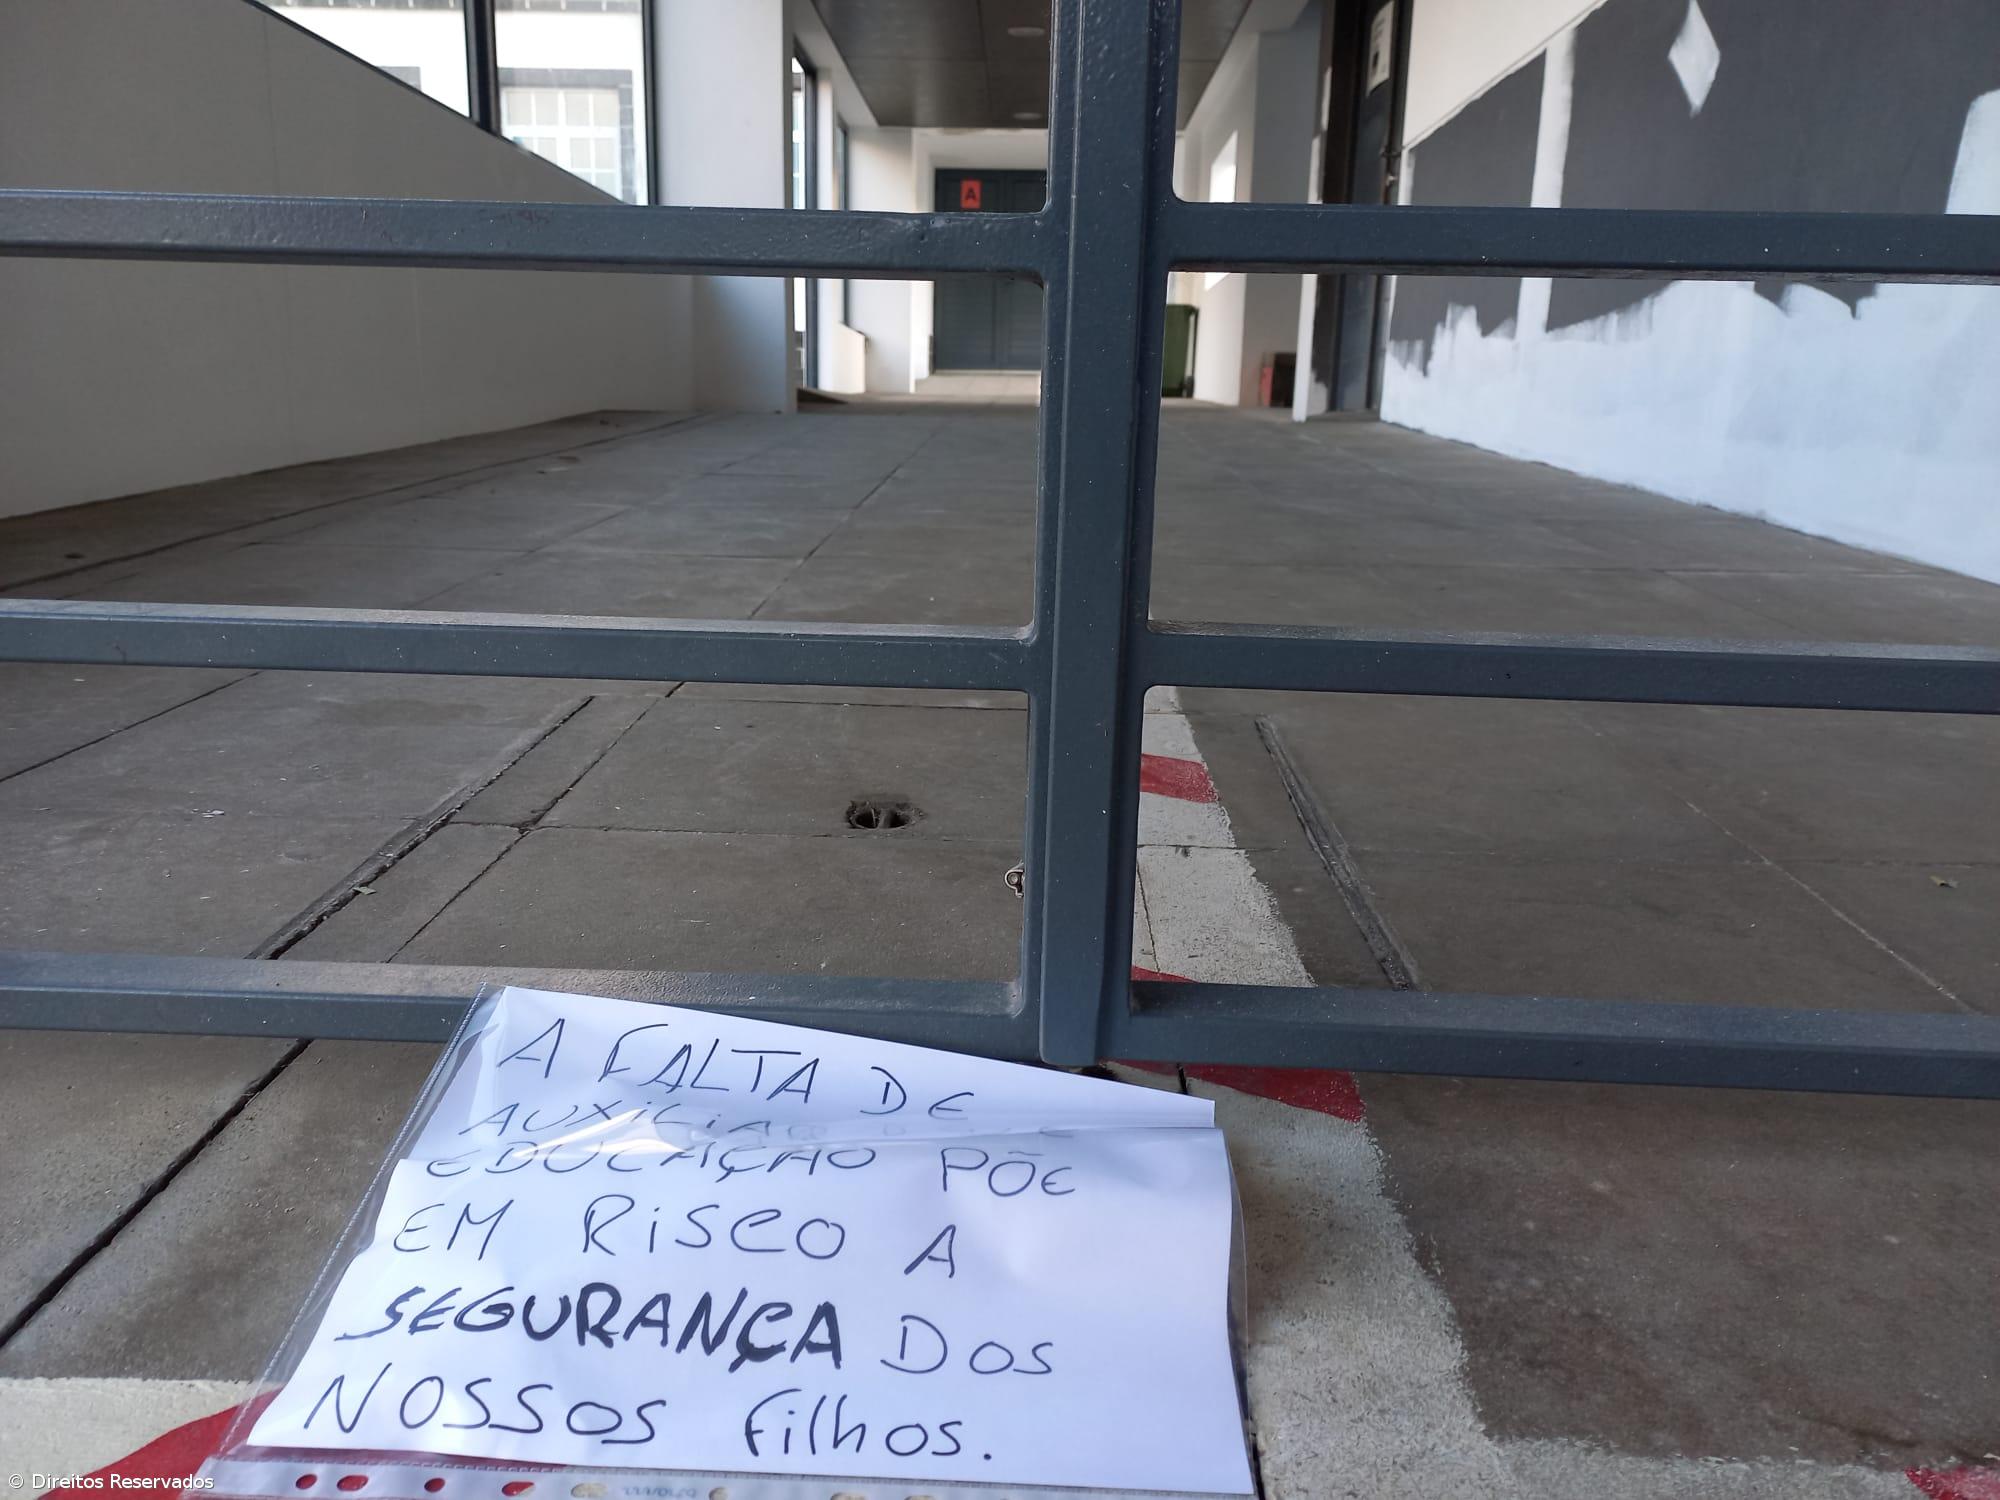 A
A FALTA DE
AUXILIAR DE
EDUCAÇÃO PÕE
EM RISCO A
SEGURANÇA DOS
NOSSOS FilhOS.
© Direitos Reservados